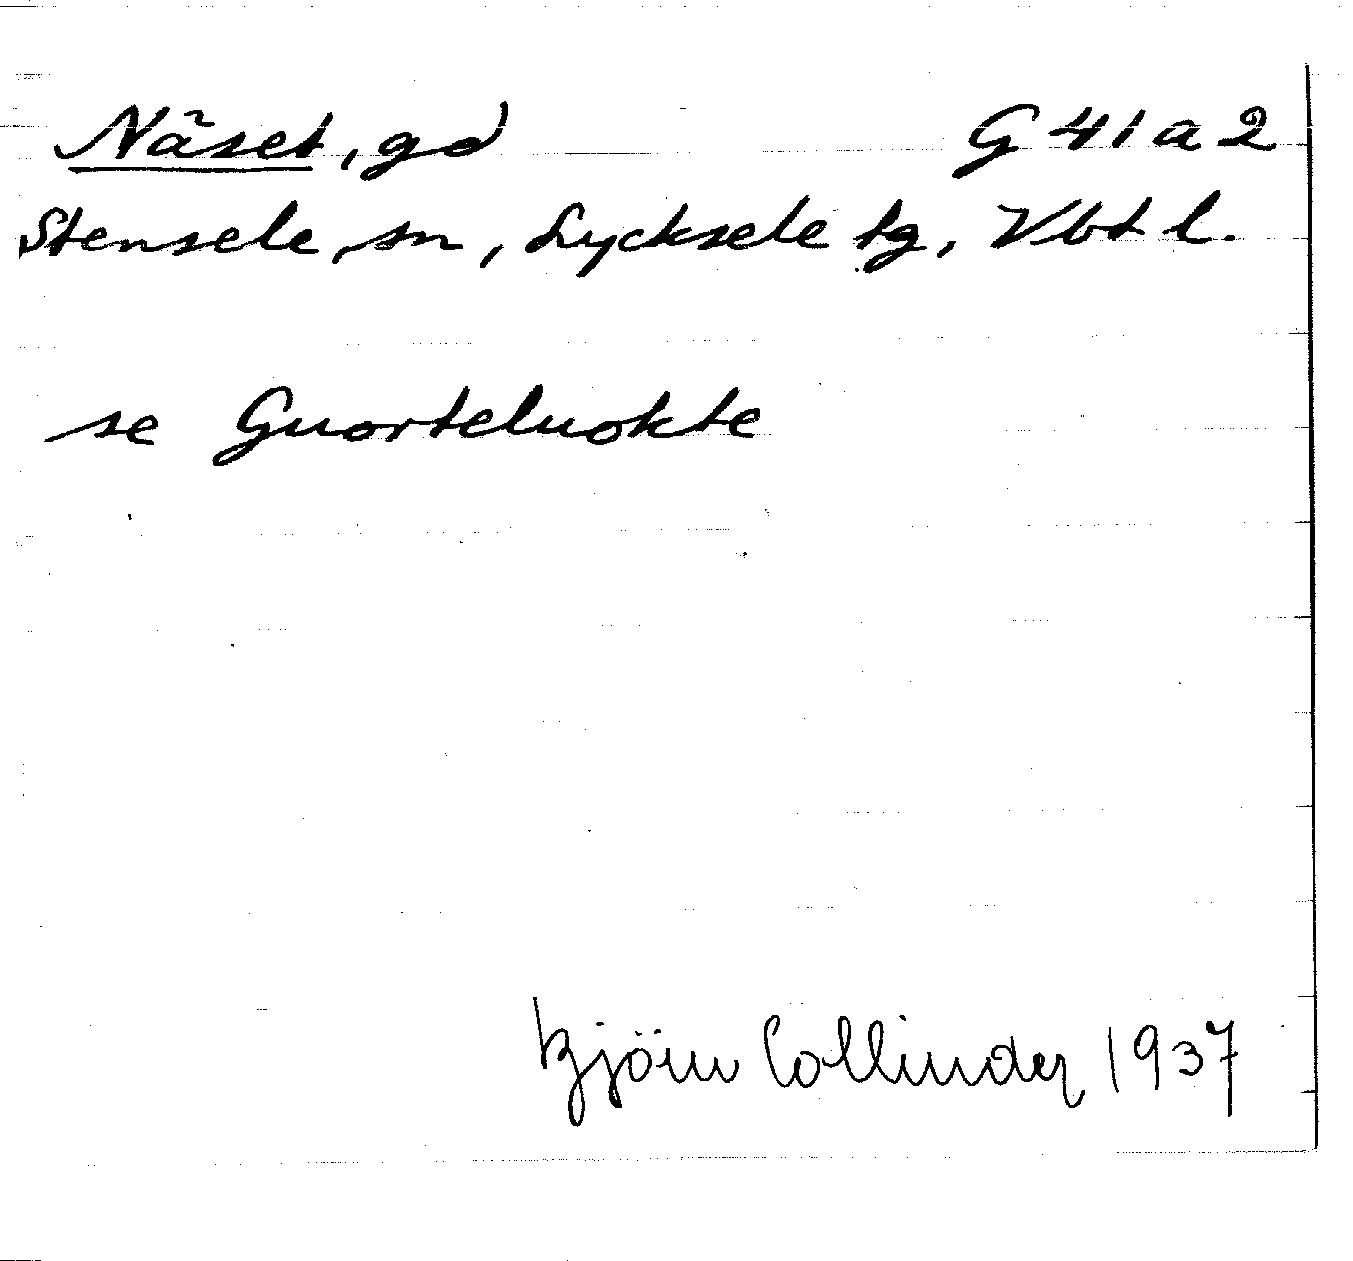 Näset, gd G 41 a 2
Stensele sn, Lycksele tg, Vbt l.
se Guorteluokte
Björn Collinder 1937